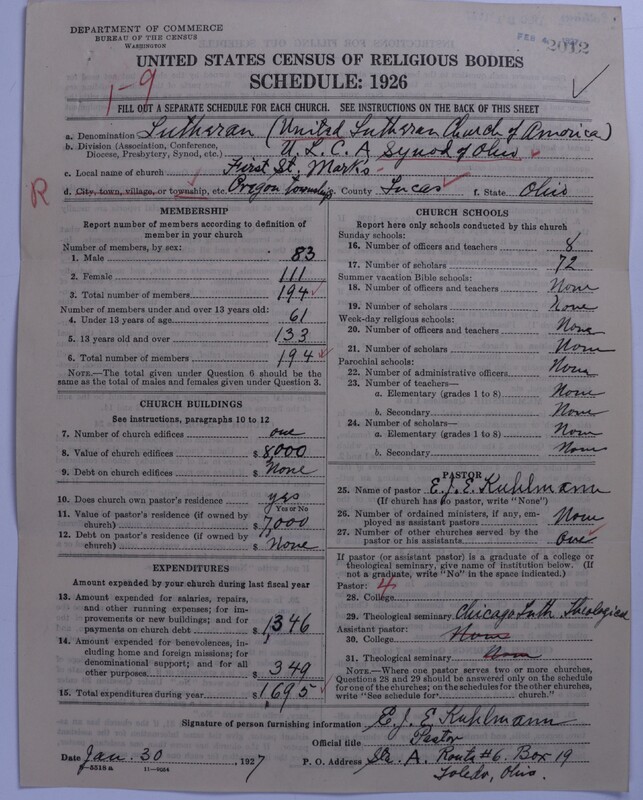 DEPARTMENT OF COMMERCE
BUREAU OF THE CENSUS
WASHINGTON
FEB 4 1927
2012
UNITED STATES CENSUS OF RELIGIOUS BODIES
SCHEDULE: 1926
1-9
FILL OUT A SEPARATE SCHEDULE FOR EACH CHURCH. SEE INSTRUCTIONS ON THE BACK OF THIS SHEET
a. Denomination Lutheran (United Lutheran Church of America)
b. Division (Association, Conference, Diocese, Presbytery, Synod, etc.) U. L. C. A Synod of Ohio
c. Local name of church First St. Marks
R
d. City, town, village, or township, etc. Oregon township e. County Lucas f. State Ohio
MEMBERSHIP
Report number of members according to definition of
member in your church
Number of members, by sex:
1. Male 83
2. Female 111
3. Total number of members 194
Number of members under and over 13 years old:
4. Under 13 years of age 61
5. 13 years old and over 133
6. Total number of members 194
NOTE.—The total given under Question 6 should be
same as the total of males and females given under Question 3.
CHURCH BUILDINGS
See instructions, paragraphs 10 to 12
7. Number of church edifices one
8. Value of church edifices $ 8,000
9. Debt on church edifices $ None
10. Does church own pastor's residence yes
Yes or No
11. Value of pastor's residence (if owned by
church) $ 7,000
12. Debt on pastor's residence (if owned by
church) $ None
EXPENDITURES
Amount expended by your church during last fiscal year
13. Amount expended for salaries, repairs,
and other running expenses; for im-
provements or new buildings; and for
payments on church debt $ 1346
14. Amount expended for benevolences, in-
cluding home and foreign missions; for
denominational support; and for all
other purposes $ 349
15. Total expenditures during year $ 1,695
CHURCH SCHOOLS
Report here only schools conducted by this church
Sunday schools:
16. Number of officers and teachers 8
17. Number of scholars 72
Summer vacation Bible schools:
18. Number of officers and teachers None
19. Number of scholars None
Week-day religious schools:
20. Number of officers and teachers None
21. Number of scholars None
Parochial schools:
22. Number of administrative officers None
23. Number of teachers—
a. Elementary (grades 1 to 8) None
b. Secondary None
24. Number of scholars—
a. Elementary (grades 1 to 8) None
b. Secondary None
PASTOR
25. Name of pastor E. J. E. Kuhlmann
(If church has no pastor, write "None")
26. Number of ordained ministers, if any, em-
ployed as assistant pastors None
27. Number of other churches served by the
pastor or his assistants One
If pastor (or assistant pastor) is a graduate of a college or
theological seminary, give name of institution below. (If
not a graduate, write "No" in the space indicated.)
Pastor: 4
28. College
29. Theological seminary Chicago Luth Theological
Assistant pastor:
30. College None
31. Theological seminary None
NOTE.—Where one pastor serves two or more churches,
Questions 28 and 29 should be answered only on the schedule
for one of the churches; on the schedules for the other churches,
write "See schedule for church."
Signature of person furnishing information E. J. E Kuhlmann
Official title Pastor
Date Jan. 30, 1927
P. O. Address Sta. A. Route #6. Box 19
Toledo, Ohio.
8-5518a 11-9264